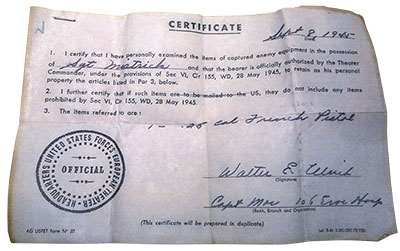 CERTIFICATE
Sept 8, 1945
1. I certify that I have personally examined the items of captured enemy equipment in the possession
of Sgt and that the bearer is officially authorized by the Theater
Commander, under the provisions of Sec VI, Cir 155, WD, 28 May 1945, to retain as his personal
property the articles listed in Par 3, below.
2. I further certify that if such items are to be mailed to the US, they do not include any items
prohibited by Sec VI, Cir 155, WD, 28 May 1945.
3. The items referred to are:
1 - .25 cal French Pistol
HEADQUARTERS UNITED STATES FORCES EUROPEAN THEATER
OFFICIAL
Walter E.
(Signature)
Capt 106
(Rank, Branch and Organization)
(This certificate will be prepared in duplicate)
AG USFET Form No 33